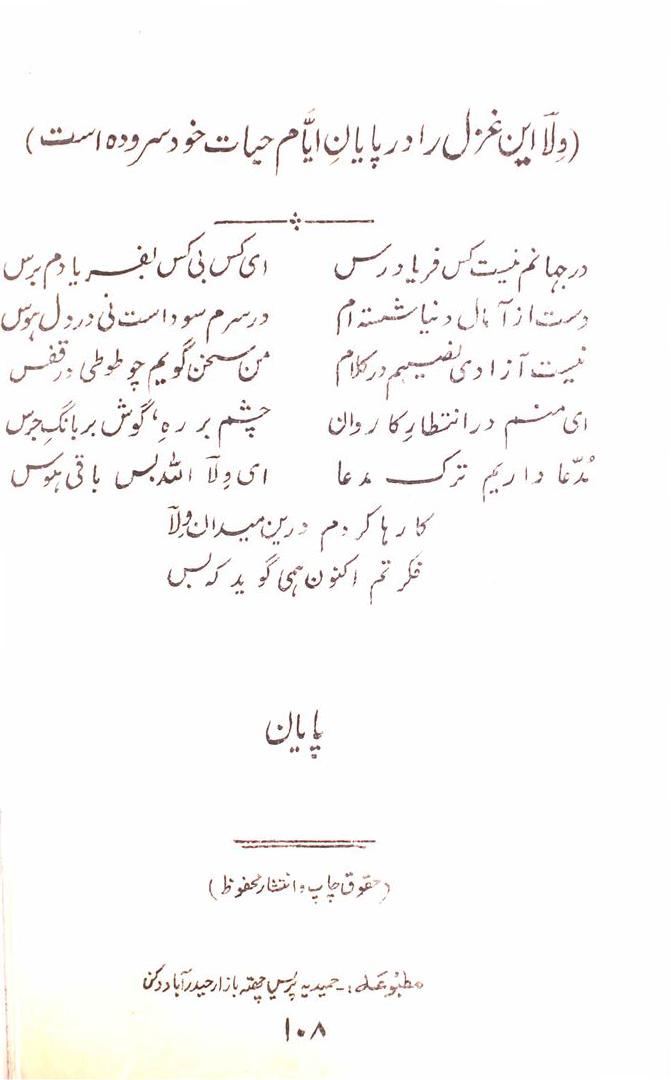 (وِلَا این غزل را در پایانِ ایّام حیات خود سروده است)
در جهانم نیست کس فریادرس ای کس بی کس بفریادم برس
دست از آمال دنیا شسته ام در سرم سوداست نی در دل ہوس
نیست آزادی نصیبم در کلام من سخن گویم چو طوطی در قفس
ای منم در انتظارِ کاروان چشم بر رہ، گوش بر بانگِ جرس
مُدّعا داریم ترک مدعا ای وِلَا اللہ بس باقی ہوس
کارہا کردم درین میدان وِلَا
فکرتم اکنون ہمی گوید کہ بس
پایان
(حقوق چاپ و انتشار محفوظ)
مطبُوعہ:۔ حمیدیہ پریس چھتہ بازار حیدرآباد دکن
۱۰۸